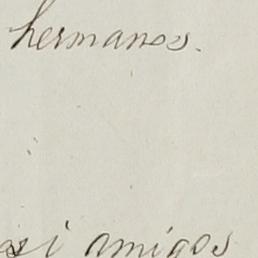 hermanos.
amigos